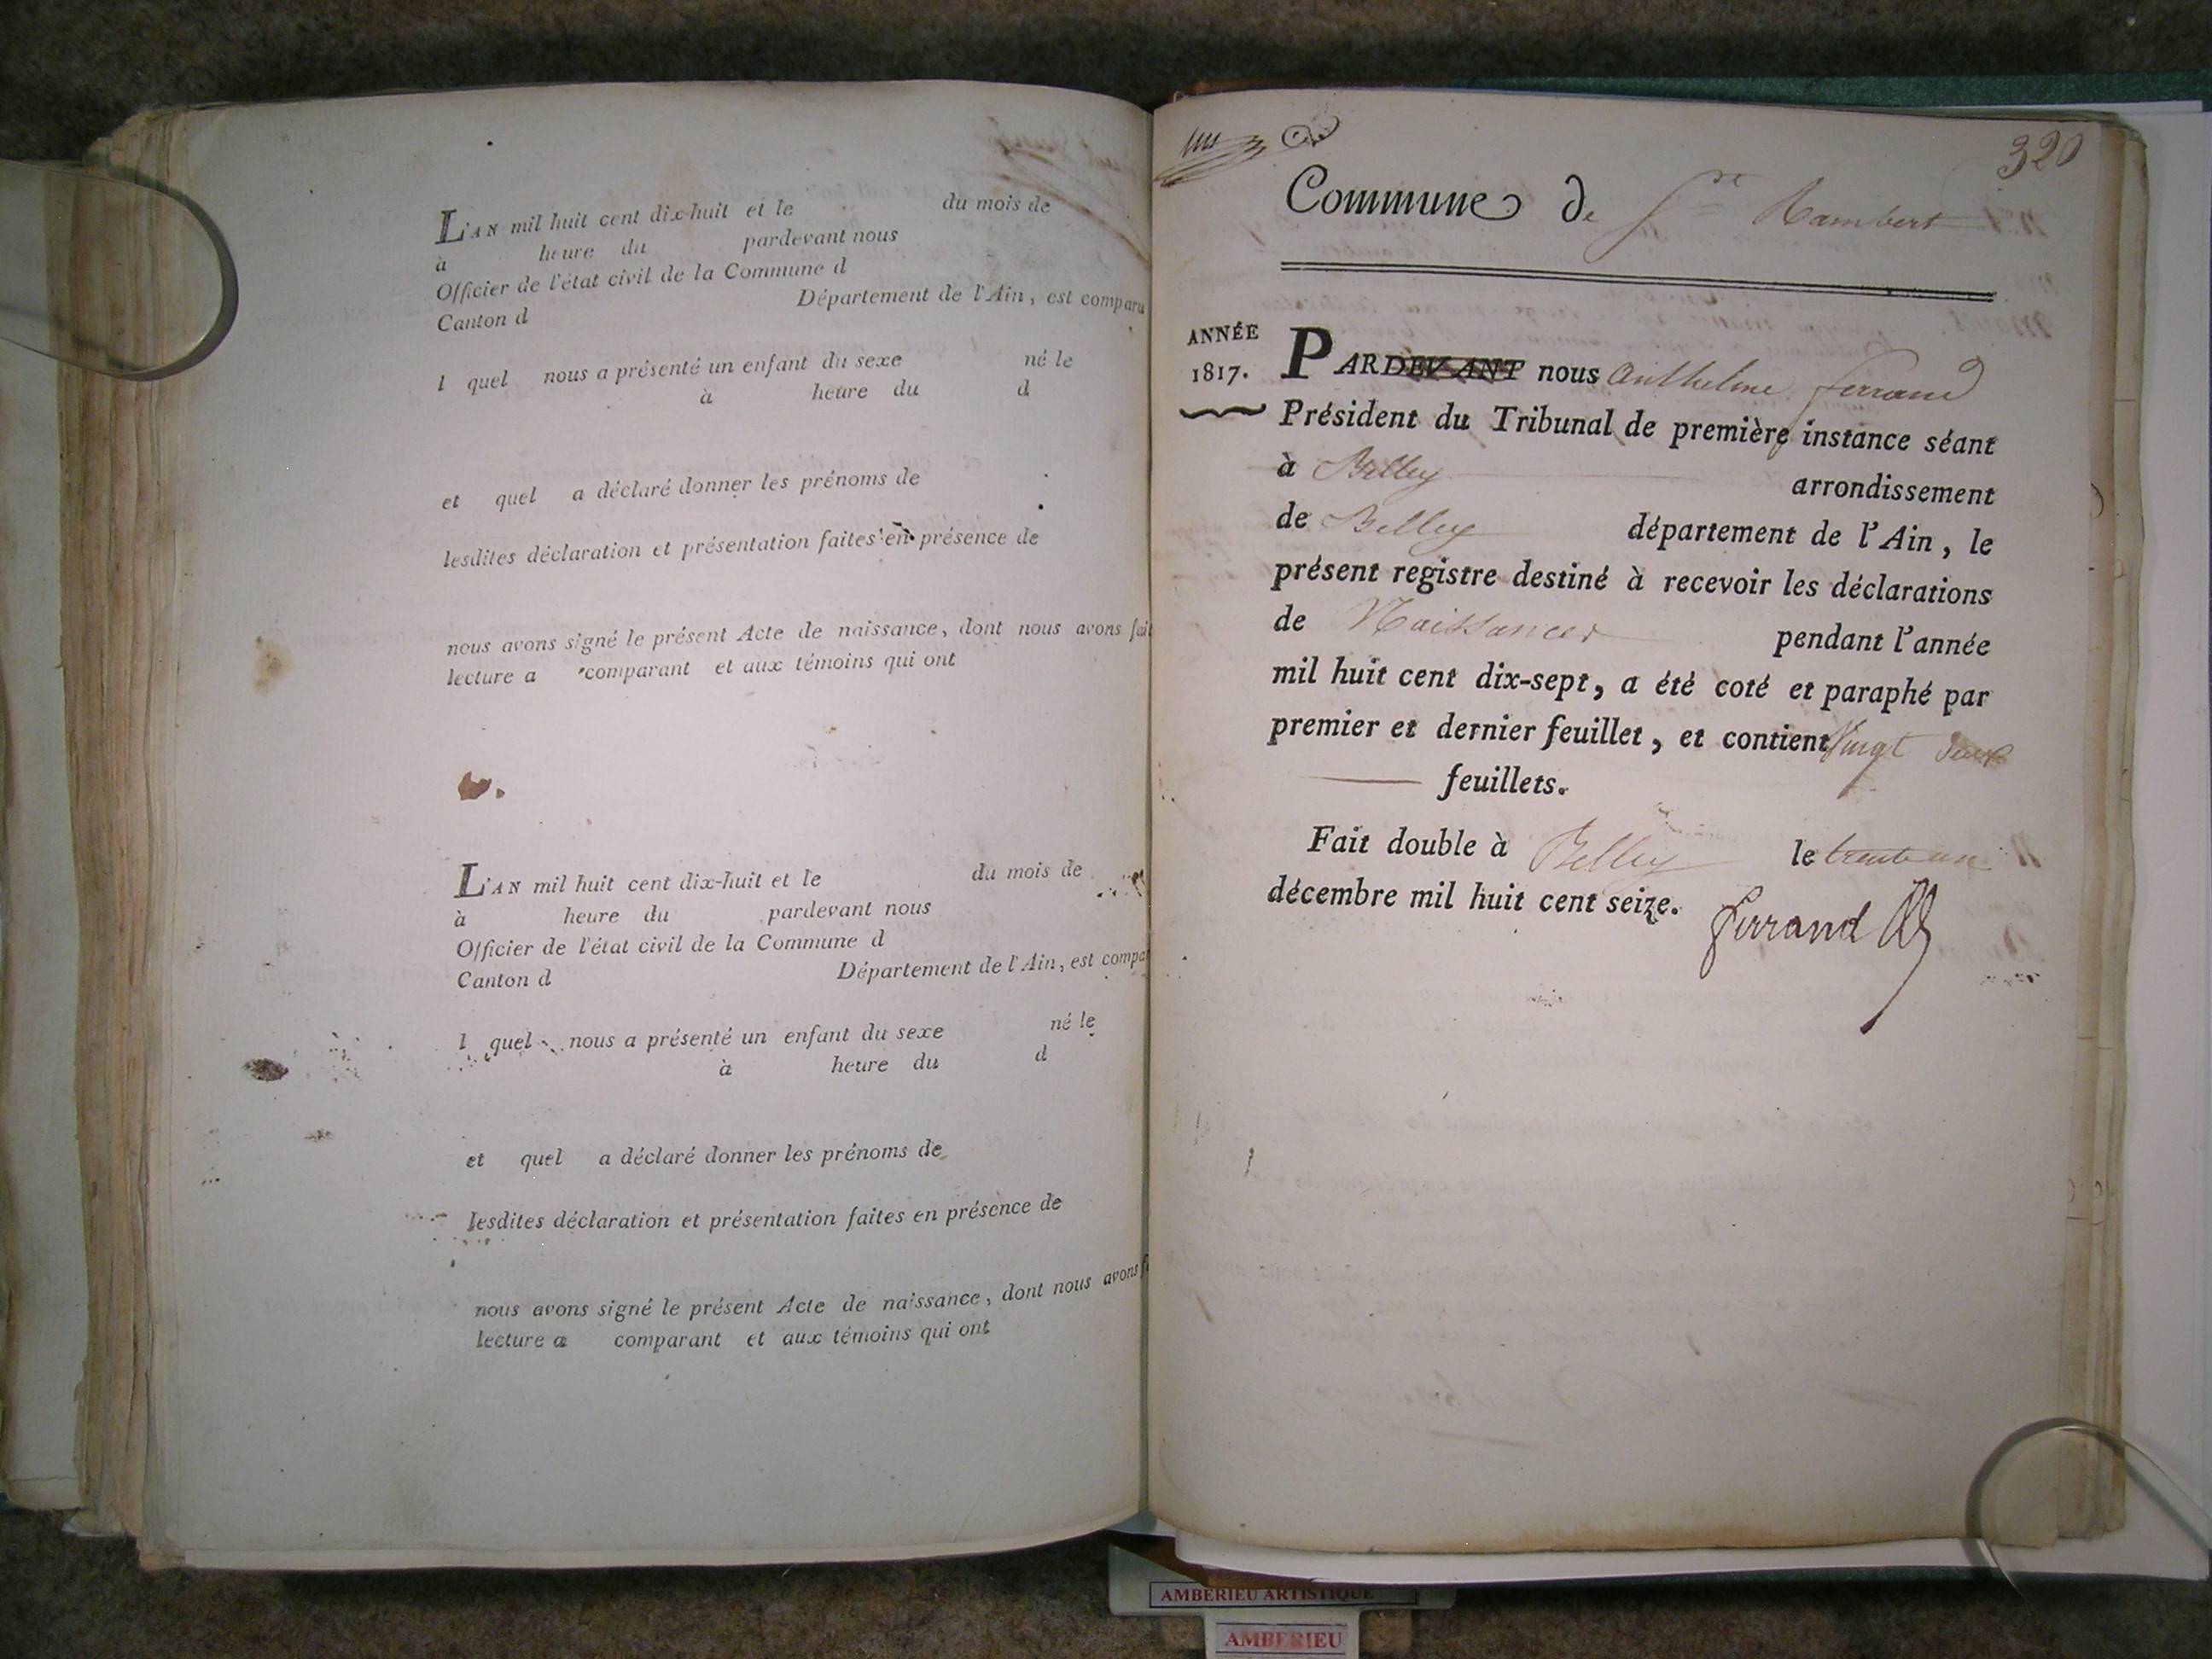 L'AN mil huit cent dix-huit et le du mois de
à heure du pardevant nous
Officier de l'état civil de la Commune d
Canton d Département de l'Ain, est comparu
l quel nous a présenté un enfant du sexe né le
à heure du d
et quel a déclaré donner les prénoms de
lesdites déclaration et présentation faites en présence de
nous avons signé le présent Acte de naissance, dont nous avons fait
lecture a comparant et aux témoins qui ont
L'AN mil huit cent dix-huit et le du mois de
à heure du pardevant nous
Officier de l'état civil de la Commune d
Canton d Département de l'Ain, est compa
l quel nous a présenté un enfant du sexe né le
à heure du d
et quel a déclaré donner les prénoms de
lesdites déclaration et présentation faites en présence de
nous avons signé le présent Acte de naissance, dont nous avons f
lecture a comparant et aux témoins qui ont
320
Commune de St Rambert
ANNÉE
1817.
PARDEVANT nous Anthelme ferrand
Président du Tribunal de première instance séant
à Belley arrondissement
de Belley département de l'Ain, le
présent registre destiné à recevoir les déclarations
de Naissances pendant l'année
mil huit cent dix-sept, a été coté et paraphé par
premier et dernier feuillet, et contient Vingt deux
feuillets.
Fait double à Belley le trente un
décembre mil huit cent seize.
ferrand
AMBERIEU ARTISTIQUE
AMBERIEU